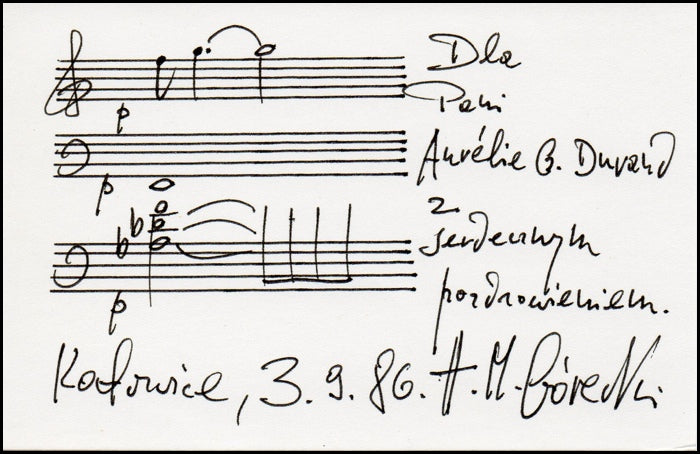 Dla
p
Pani
Aurélie B. Durand
p
z
serdecznym
p
pozdrowieniem.
Katowice, 3.9.86. H. M. Górecki